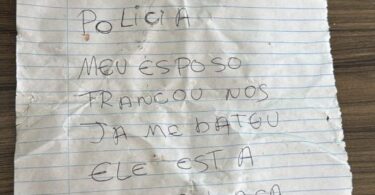 POLICIA
MEU ESPOSO
TRANCOU NOS
JA ME BATEU
ELE EST A